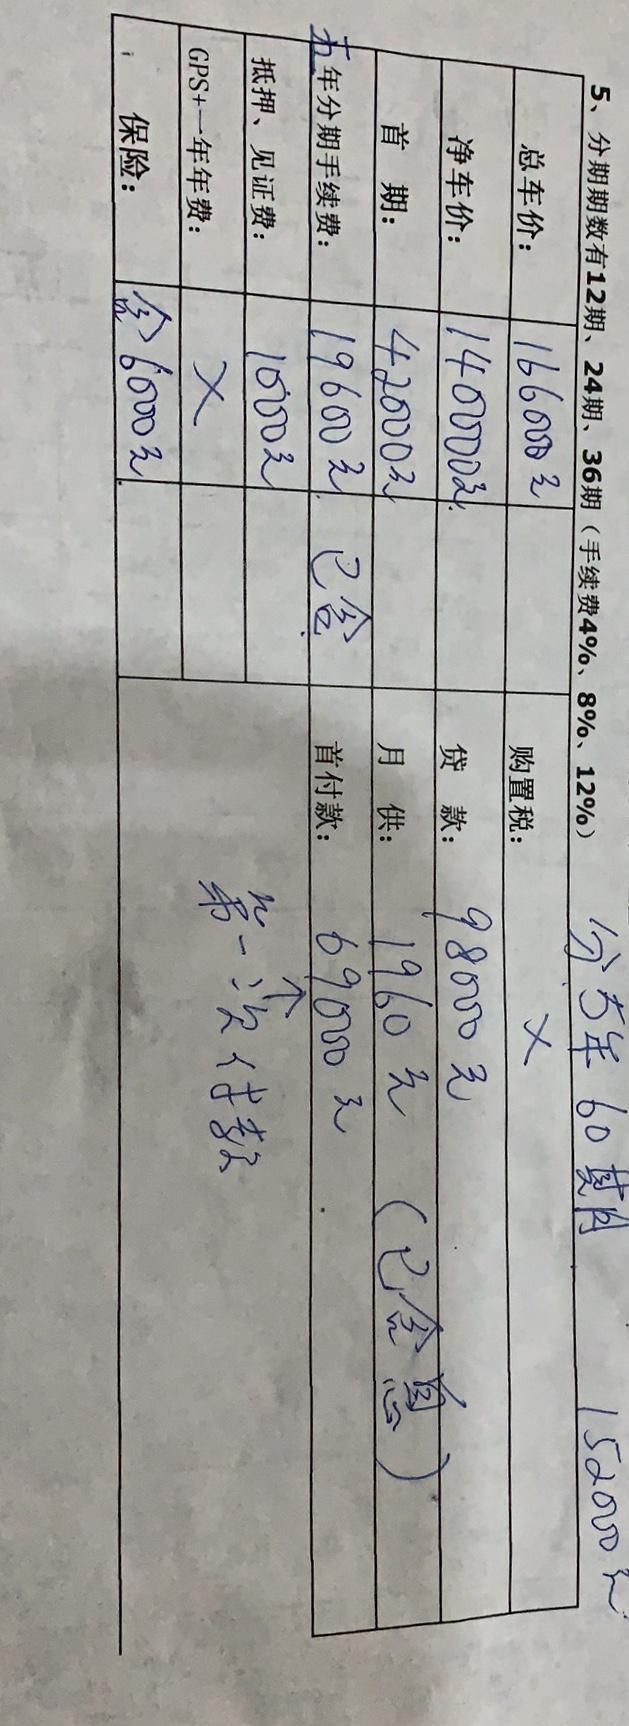 5、分期期数有12期、24期、36期（手续费4%、8%、12%）
分5年 60其月 152000元
总车价： 166000元 购置税： ×
净车价： 140000元 贷 款： 98000元
首 期： 42000元 月 供： 1960元（已含息）
五年分期手续费： 19600元 已含 首付款： 69000元
抵押、见证费： 1000元 ↑
GPS+一年年费： × 第一次付款
保险： 含6000元